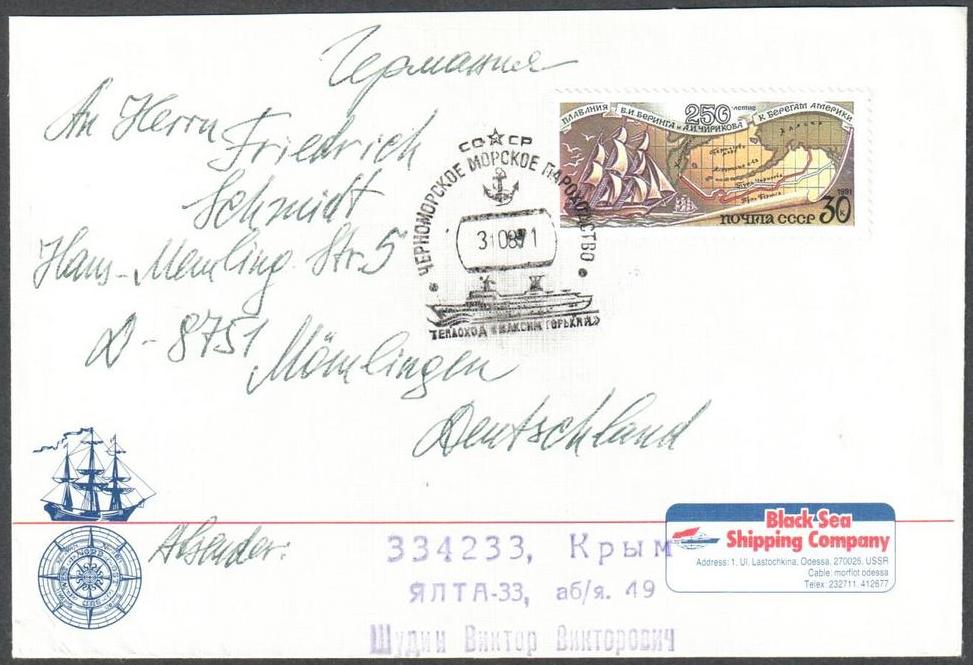 Германия
An Herrn
Friedrich
Schmidt
Hans-Memling Str. 5
D-8751
Mömlingen
Deutschland
ПЛАВАНИЯ В.И. БЕРИНГА и А.И. ЧИРИКОВА К БЕРЕГАМ АМЕРИКИ
250-летие
1991
ПОЧТА СССР 30 к
СССР
ЧЕРНОМОРСКОЕ МОРСКОЕ ПАРОХОДСТВО
ТЕПЛОХОД «МАКСИМ ГОРЬКИЙ»
Absender:
334233, Крым
ЯЛТА-33, аб/я. 49
Шудин Виктор Викторович
Black Sea
Shipping Company
Address: 1. Ul. Lastochkina, Odessa, 270026, USSR
Cable: morflot odessa
Telex: 232711, 412677